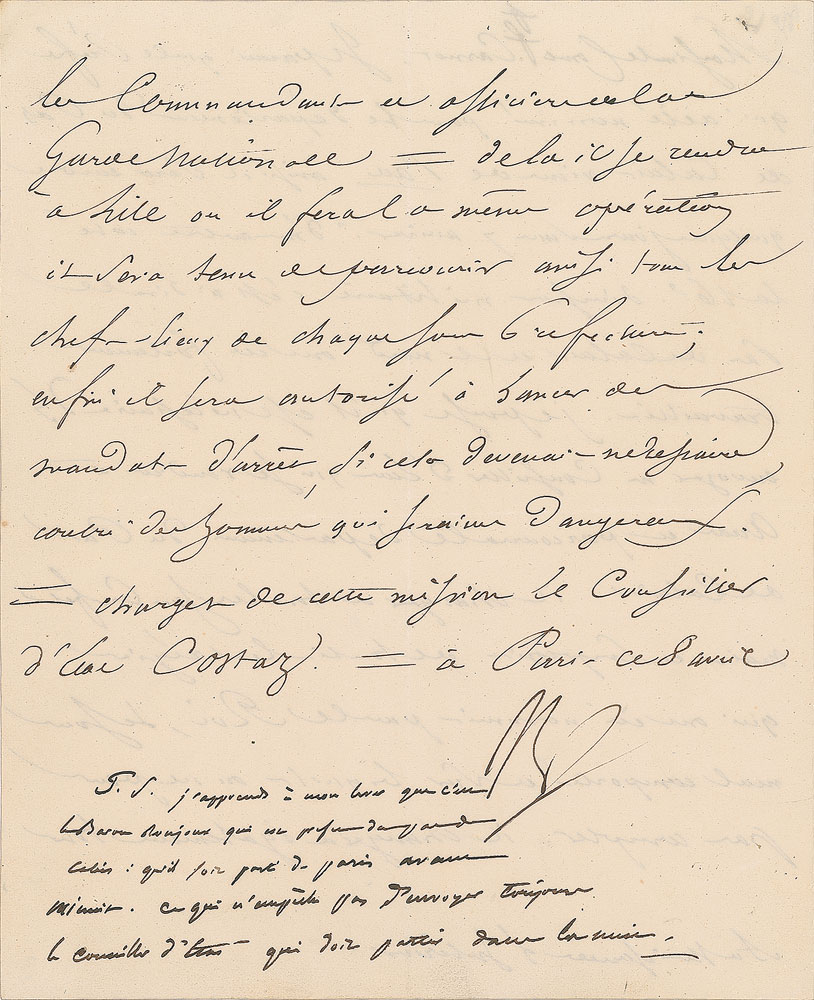 les Commandants et officiers de la
Garde Nationale = de la il se rendra
à Lille ou il fera la même opération
il sera tenu de parcourir aussi tous les
chefs-lieux de chaque sous Prefecture;
enfin il sera autorisé à lancer des
mandats d'arrêt, si cela devenait necessaire
contre des hommes qui seraient dangereux.
= chargez de cette mission le Conseiller
d'Etat Costaz. = à Paris ce 8 avril
P.S. j'apprends à mon lever que c'est
le Baron Roujoux qui est prefet du pas de
Calais: qu'il soit parti de paris avant
minuit. ce qui n'empêche pas d'envoyer toujours
le conseiller d'etat qui doit partir dans la nuit.